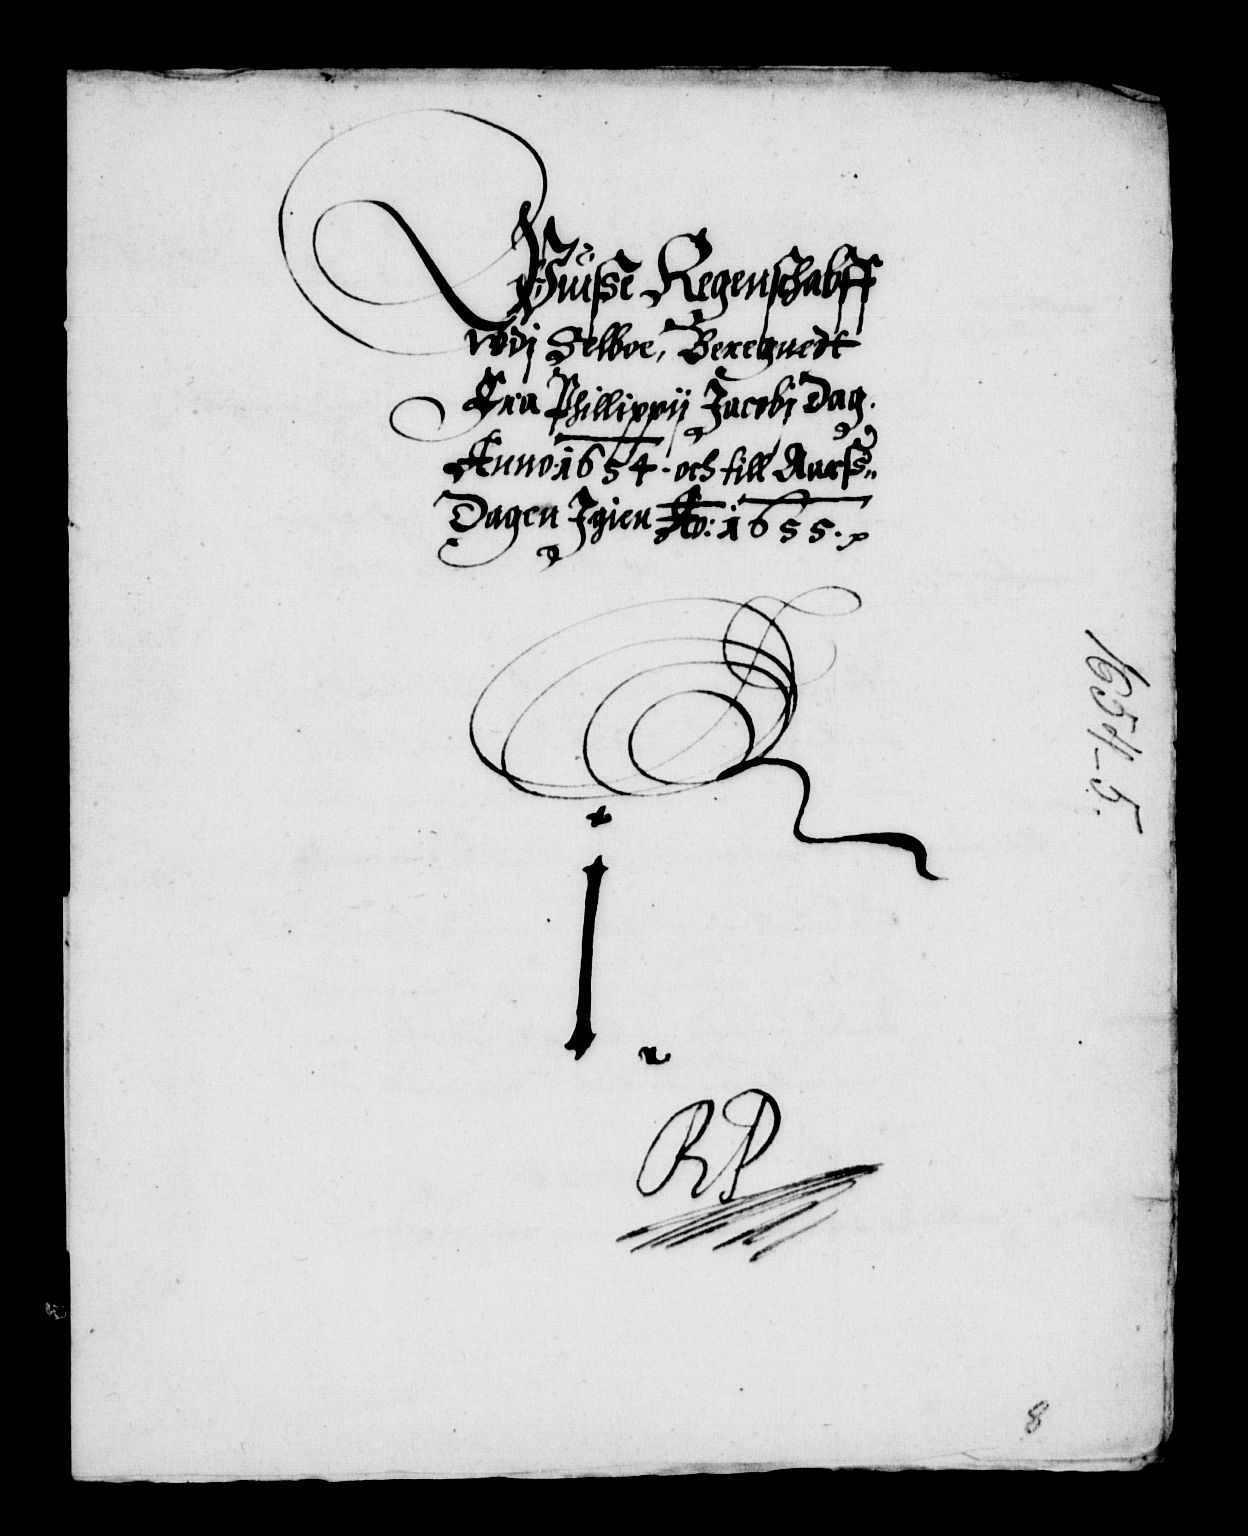 Huiße Regenschabff
wdj Selboe, Beregnedt
Fra Phillippij Jacobj Dag.
Anno: 1654. och till Aarß„
Dagen Igien Ao: 1655.
I
RP
1654-5.
8